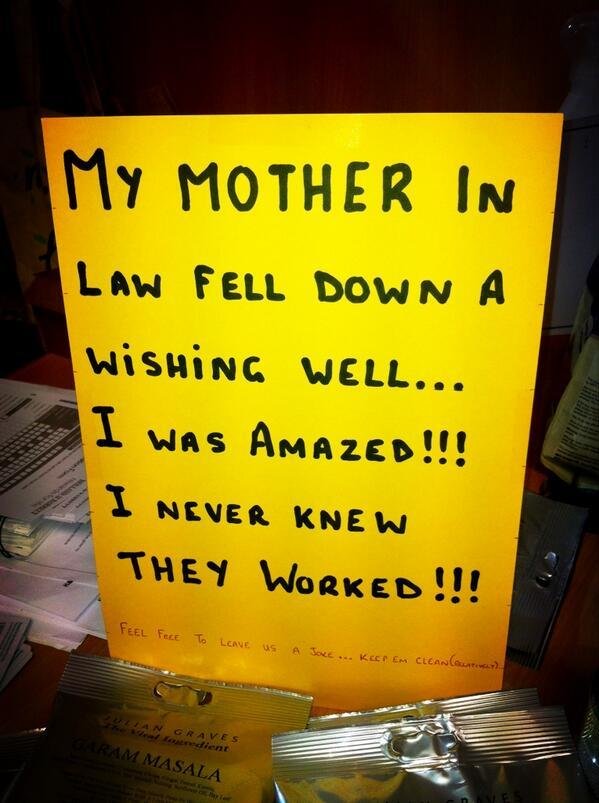 MY MOTHER IN
LAW FELL DOWN A
WISHING WELL...
I WAS AMAZED!!!
I NEVER KNEW
THEY WORKED!!!
FEEL FREE TO LEAVE US A JOKE... KEEP EM CLEAN(RELATIVELY)...
JULIAN GRAVES
The Vital Ingredient
GARAM MASALA